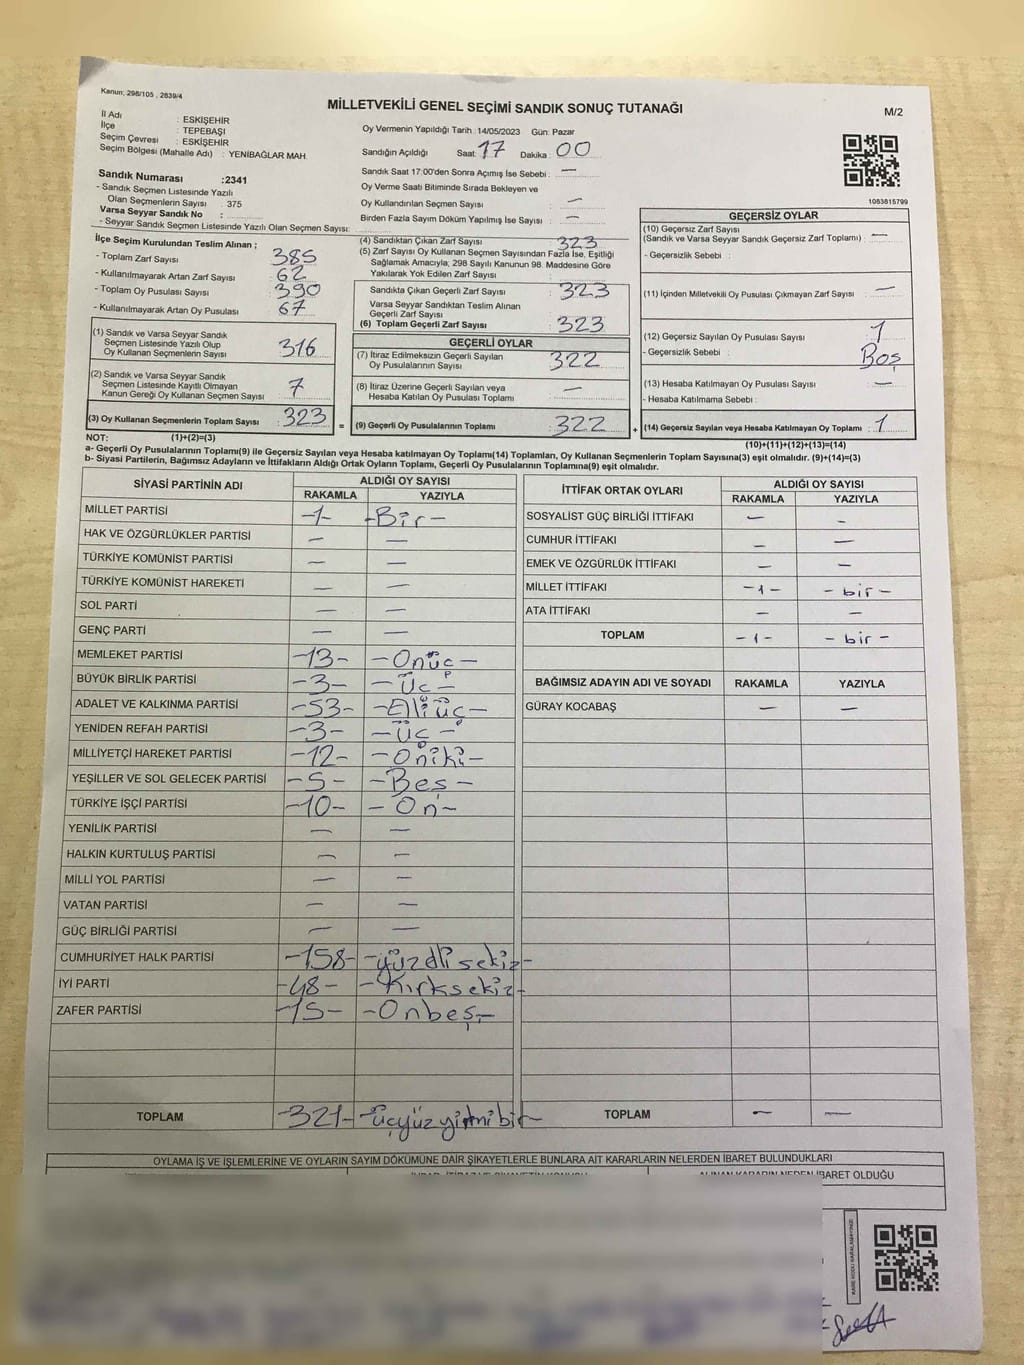 Kanun; 298/105 , 2839/4
MİLLETVEKİLİ GENEL SEÇİMİ SANDIK SONUÇ TUTANAĞI
M/2
İl Adı : ESKİŞEHİR
İlçe : TEPEBAŞI
Seçim Çevresi : ESKİŞEHİR
Seçim Bölgesi (Mahalle Adı) : YENİBAĞLAR MAH.
Oy Vermenin Yapıldığı Tarih :14/05/2023 Gün: Pazar
Sandığın Açıldığı Saat: 17 Dakika: 00
Sandık Saat 17:00'den Sonra Açımış İse Sebebi : —
Oy Verme Saati Bitiminde Sırada Bekleyen ve
Oy Kullandırılan Seçmen Sayısı : —
Birden Fazla Sayım Döküm Yapılmış İse Sayısı : —
1083815799
Sandık Numarası :2341
- Sandık Seçmen Listesinde Yazılı
Olan Seçmenlerin Sayısı : 375
Varsa Seyyar Sandık No :
- Seyyar Sandık Seçmen Listesinde Yazılı Olan Seçmen Sayısı:
İlçe Seçim Kurulundan Teslim Alınan ;
- Toplam Zarf Sayısı : 385
- Kullanılmayarak Artan Zarf Sayısı : 62
- Toplam Oy Pusulası Sayısı : 390
- Kullanılmayarak Artan Oy Pusulası : 67
(1) Sandık ve Varsa Seyyar Sandık
Seçmen Listesinde Yazılı Olup
Oy Kullanan Seçmenlerin Sayısı : 316
(2) Sandık ve Varsa Seyyar Sandık
Seçmen Listesinde Kayıtlı Olmayan
Kanun Gereği Oy Kullanan Seçmen Sayısı : 7
(3) Oy Kullanan Seçmenlerin Toplam Sayısı : 323
(4) Sandıktan Çıkan Zarf Sayısı : 323
(5) Zarf Sayısı Oy Kullanan Seçmen Sayısından Fazla İse, Eşitliği
Sağlamak Amacıyla, 298 Sayılı Kanunun 98. Maddesine Göre
Yakılarak Yok Edilen Zarf Sayısı :
Sandıkta Çıkan Geçerli Zarf Sayısı : 323
Varsa Seyyar Sandıktan Teslim Alınan
Geçerli Zarf Sayısı :
(6) Toplam Geçerli Zarf Sayısı : 323
GEÇERLİ OYLAR
(7) İtiraz Edilmeksizin Geçerli Sayılan
Oy Pusulalarının Sayısı : 322
(8) İtiraz Üzerine Geçerli Sayılan veya
Hesaba Katılan Oy Pusulası Toplamı : —
= (9) Geçerli Oy Pusulalarının Toplamı : 322
GEÇERSİZ OYLAR
(10) Geçersiz Zarf Sayısı
(Sandık ve Varsa Seyyar Sandık Geçersiz Zarf Toplamı) : —
- Geçersizlik Sebebi :
(11) İçinden Milletvekili Oy Pusulası Çıkmayan Zarf Sayısı : —
(12) Geçersiz Sayılan Oy Pusulası Sayısı : 1
- Geçersizlik Sebebi : Boş
(13) Hesaba Katılmayan Oy Pusulası Sayısı : —
- Hesaba Katılmama Sebebi :
+ (14) Geçersiz Sayılan veya Hesaba Katılmayan Oy Toplamı : 1
NOT: (1)+(2)=(3)
(10)+(11)+(12)+(13)=(14)
a- Geçerli Oy Pusulalarının Toplamı(9) ile Geçersiz Sayılan veya Hesaba katılmayan Oy Toplamı(14) Toplamları, Oy Kullanan Seçmenlerin Toplam Sayısına(3) eşit olmalıdır. (9)+(14)=(3)
b- Siyasi Partilerin, Bağımsız Adayların ve İttifakların Aldığı Ortak Oyların Toplamı, Geçerli Oy Pusulalarının Toplamına(9) eşit olmalıdır.
SİYASİ PARTİNİN ADI ALDIĞI OY SAYISI
RAKAMLA YAZIYLA
MİLLET PARTİSİ -1- -Bir-
HAK VE ÖZGÜRLÜKLER PARTİSİ — —
TÜRKİYE KOMÜNİST PARTİSİ — —
TÜRKİYE KOMÜNİST HAREKETİ — —
SOL PARTİ — —
GENÇ PARTİ — —
MEMLEKET PARTİSİ -13- -Onüç-
BÜYÜK BİRLİK PARTİSİ -3- -Üç-
ADALET VE KALKINMA PARTİSİ -53- -Elliüç-
YENİDEN REFAH PARTİSİ -3- -üç-
MİLLİYETÇİ HAREKET PARTİSİ -12- -Oniki-
YEŞİLLER VE SOL GELECEK PARTİSİ -5- -Beş-
TÜRKİYE İŞÇİ PARTİSİ -10- -On-
YENİLİK PARTİSİ — —
HALKIN KURTULUŞ PARTİSİ — —
MİLLİ YOL PARTİSİ — —
VATAN PARTİSİ — —
GÜÇ BİRLİĞİ PARTİSİ — —
CUMHURİYET HALK PARTİSİ -158- -yüzelli sekiz-
İYİ PARTİ -48- -Kırksekiz-
ZAFER PARTİSİ -15- -Onbeş-
TOPLAM -321- -üçyüz yirmi bir-
İTTİFAK ORTAK OYLARI ALDIĞI OY SAYISI
RAKAMLA YAZIYLA
SOSYALİST GÜÇ BİRLİĞİ İTTİFAKI — —
CUMHUR İTTİFAKI — —
EMEK VE ÖZGÜRLÜK İTTİFAKI — —
MİLLET İTTİFAKI -1- -bir-
ATA İTTİFAKI — —
TOPLAM -1- -bir-
BAĞIMSIZ ADAYIN ADI VE SOYADI RAKAMLA YAZIYLA
GÜRAY KOCABAŞ — —
TOPLAM — —
OYLAMA İŞ VE İŞLEMLERİNE VE OYLARIN SAYIM DÖKÜMÜNE DAİR ŞİKAYETLERLE BUNLARA AİT KARARLARIN NELERDEN İBARET BULUNDUKLARI
ALINAN KARARIN NEDEN İBARET OLDUĞU